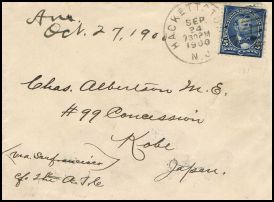 Ans.
Oct. 27, 190
HACKETTSTOWN
SEP
24
730PM
1900
N.J.
Chas. Albertson M.E.
#99 Concession
Kobe
Japan.
(via Sanfrancisco)